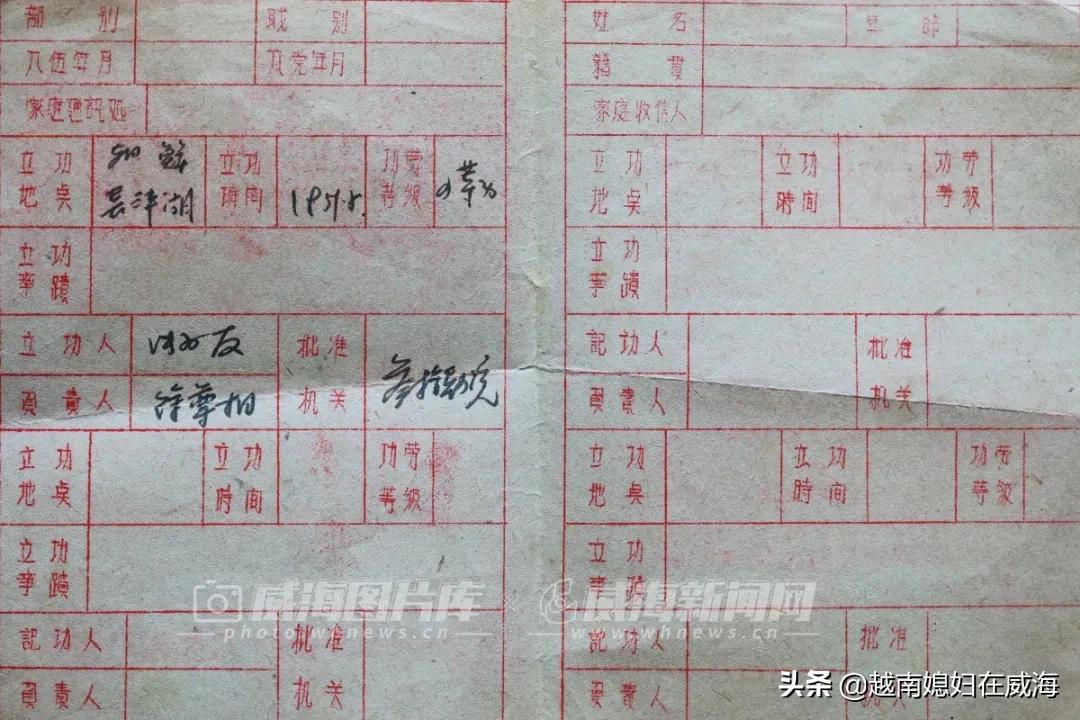 部别 职别
入伍年月 入党年月
家庭通訊处
立功地点 朝鲜 吴沣湖 立功時间 1951.5. 功劳等級 等功
立功事蹟
立功人 批准机关
負責人
立功地点 立功時间 功劳等級
立功事蹟
記功人 批准机关
負責人
姓名 年龄
籍貫
家庭收信人
立功地点 立功時间 功劳等級
立功事蹟
記功人 批准机关
負責人
立功地点 立功時间 功劳等級
立功事蹟
記功人 批准机关
負責人
威海图片库
photo.whnews.cn
威海新闻网
www.whnews.cn
头条 @越南媳妇在威海